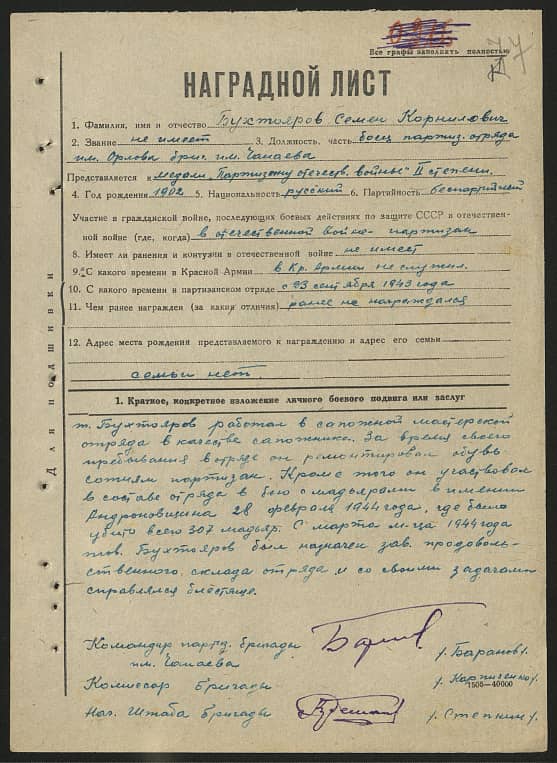 Все графы заполнять полностью
77
НАГРАДНОЙ ЛИСТ
1. Фамилия, имя и отчество Бухтояров Семен Корнилович
2. Звание не имеет 3. Должность, часть боец партиз. отряда
им. Орлова бриг. им. Чапаева
Представляется к медали „Партизану отечеств. войны" II степени.
4. Год рождения 1902 5. Национальность русский 6. Партийность беспартийный
Участие в гражданской войне, последующих боевых действиях по защите СССР и отечествен-
ной войне (где, когда) в отечественной войне - партизан
8. Имеет ли ранения и контузии в отечественной войне не имеет
9. С какого времени в Красной Армии в Кр. армии не служил.
10. С какого времени в партизанском отряде с 23 сентября 1943 года
11. Чем ранее награжден (за какия отличия) ранее не награждался
12. Адрес места рождения представляемого к награждению и адрес его семьи
семьи нет.
Для подшивки
1. Краткое, конкретное изложение личного боевого подвига или заслуг
т. Бухтояров работал в сапожной мастерской
отряда в качестве сапожника. За время своего
пребывания в отряде он ремонтировал обувь
сотням партизан. Кроме того он участвовал
в составе отряда в бою с мадьярами в имении
Андроновщина 28 февраля 1944 года, где было
убито всего 307 мадьяр. С марта м-ца 1944 года
тов. Бухтояров был назначен зав. продоволь-
ственного склада отряда и со своими задачами
справлялся блестяще.
Командир партиз. бригады
им. Чапаева /Баранов/.
Комиссар бригады /Карпиенко/
1505—40000
Нач. Штаба бригады /Степкин/.